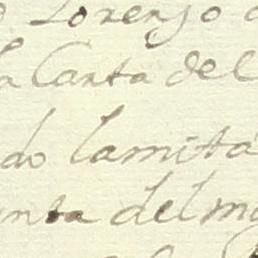 Lorenzo
la Carta del
do lamita
nta del m